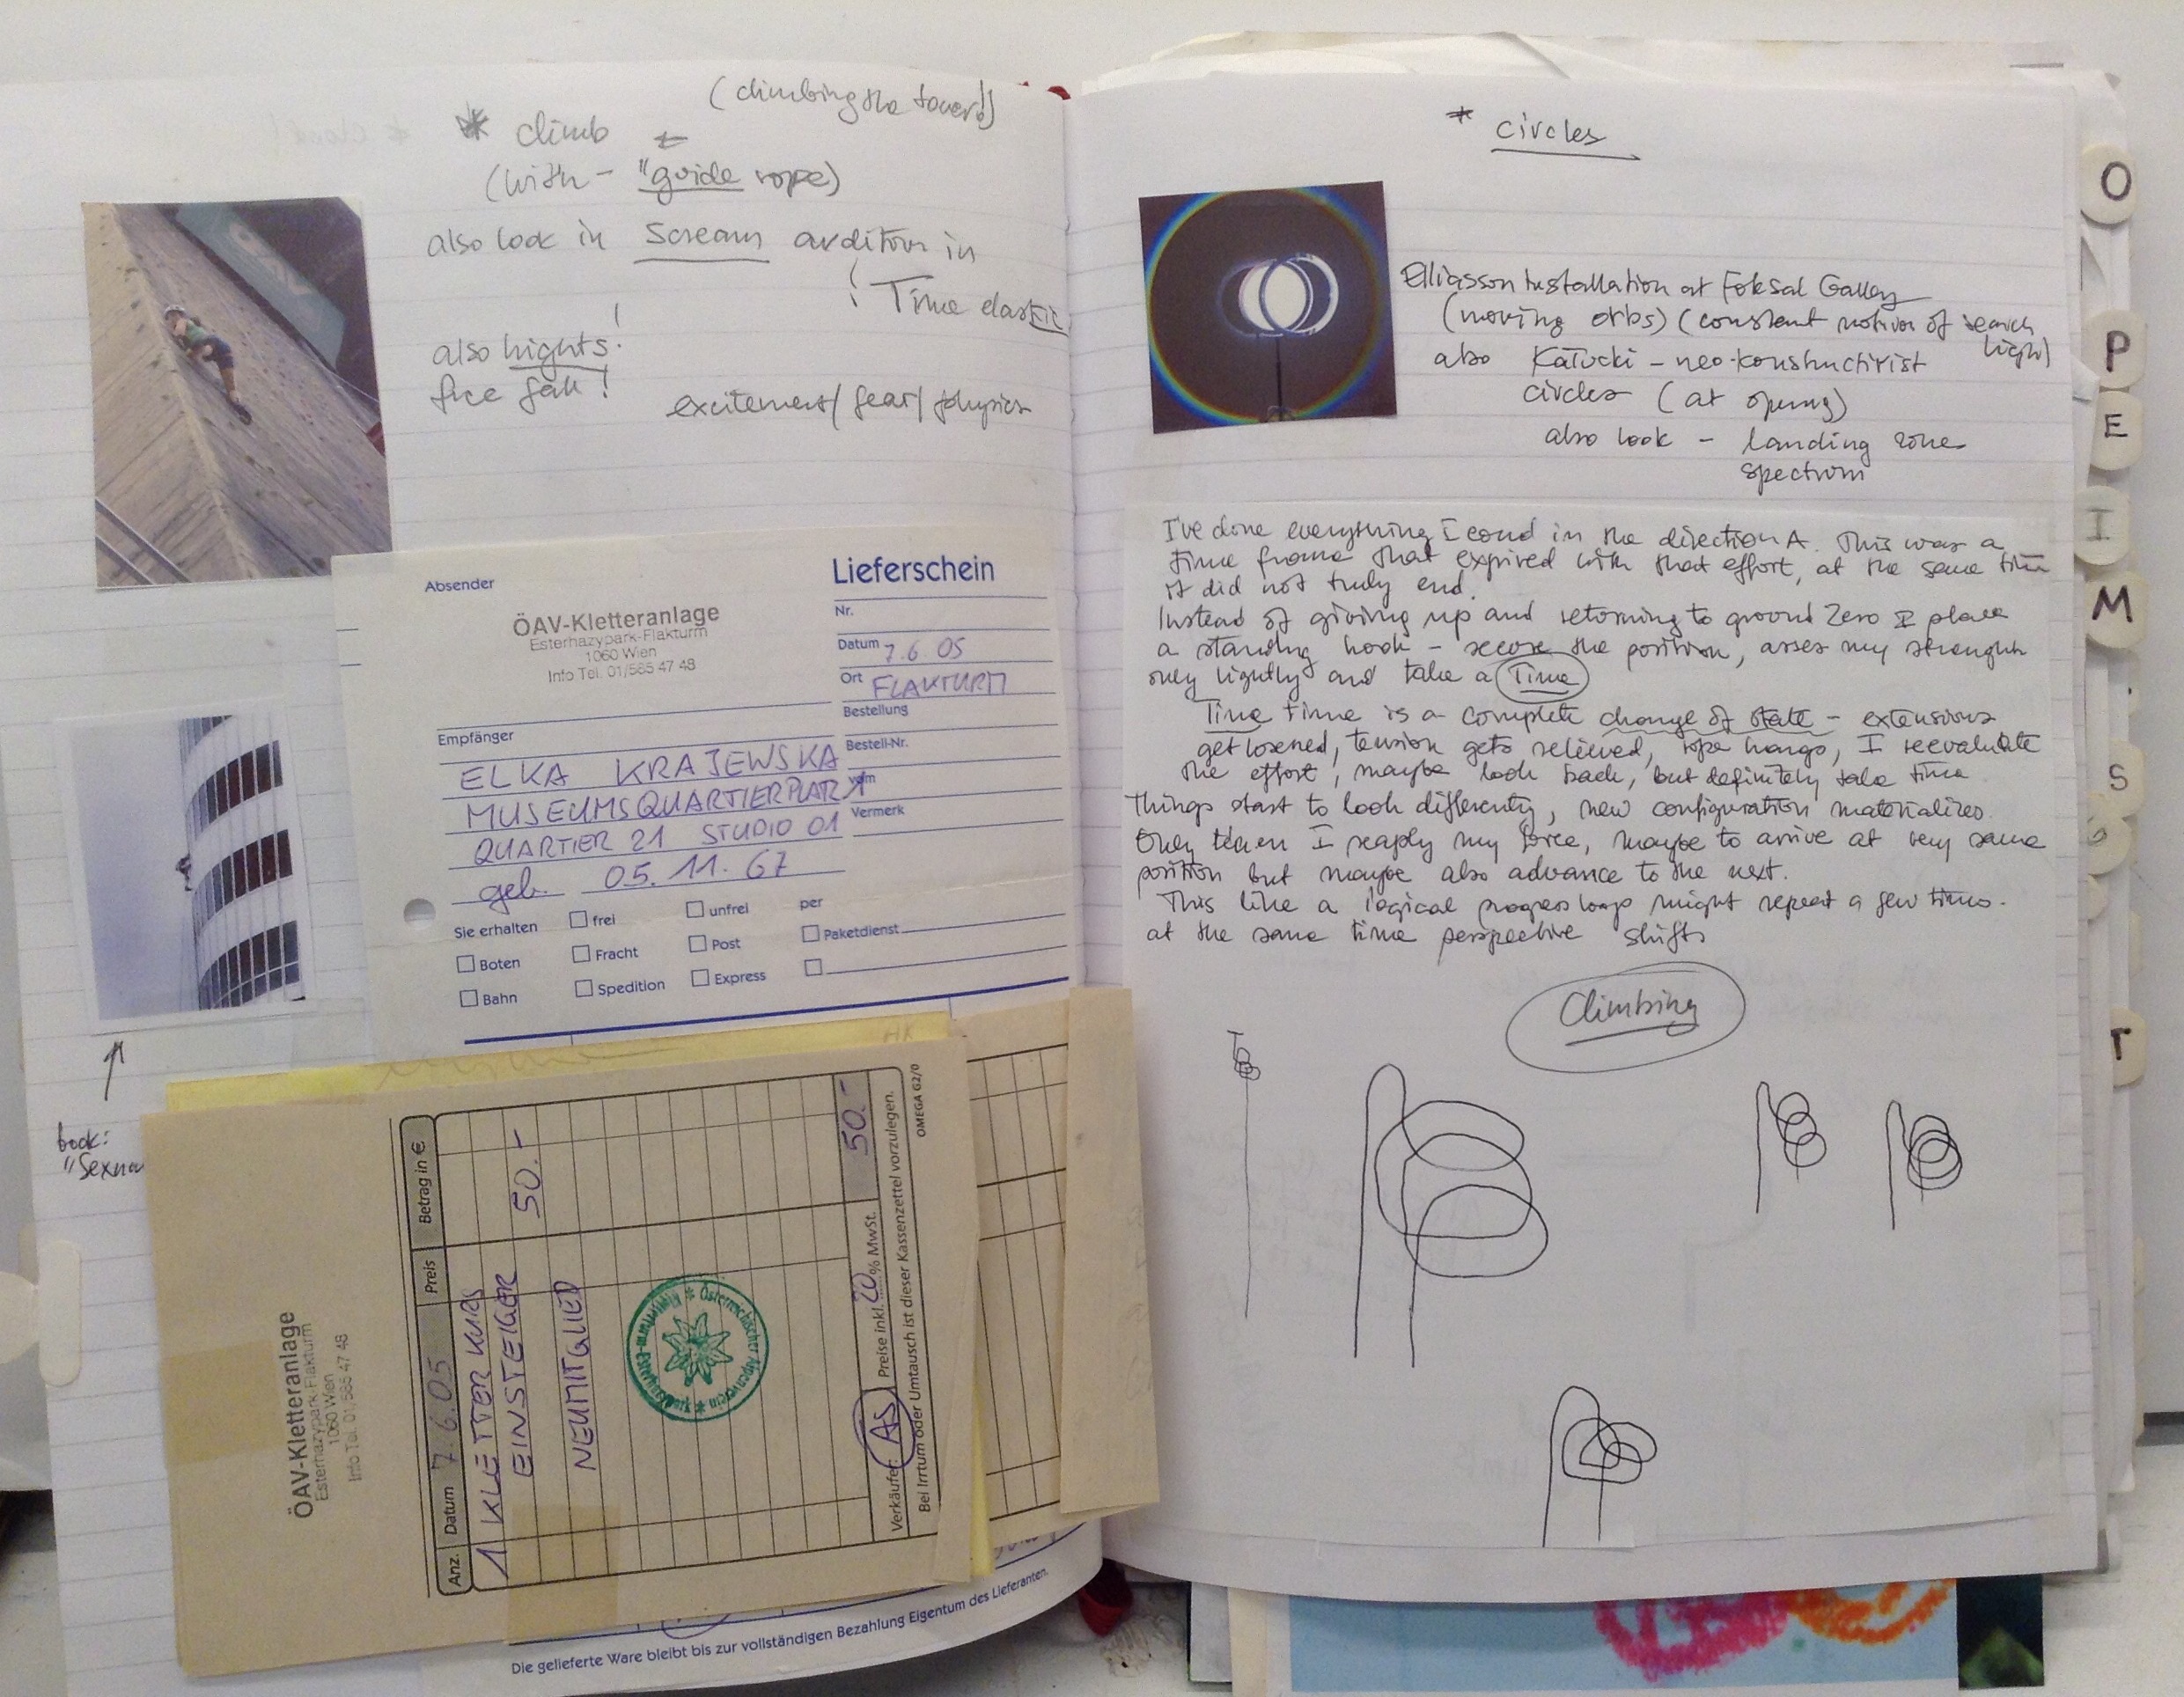 (climbing the tower!)
* climb
(with - "guide rope)
also look in Scream audition in
! Time elastic
also hights!
free fall!
excitement/fear/physics
Absender
Lieferschein
ÖAV-Kletteranlage
Esterhazypark-Flakturm
1060 Wien
Info Tel. 01/585 47 48
Nr.
Datum 7.6 05
Ort FLAKTURM
Bestellung
Bestell-Nr.
vom
Vermerk
Empfänger
ELKA KRAJEWSKA
MUSEUMSQUARTIERPLATZ 1
QUARTIER 21 STUDIO 01
geb. 05. 11. 67
Sie erhalten frei unfrei per
Boten Fracht Post Paketdienst
Bahn Spedition Express
book:
"Sexna
ÖAV-Kletteranlage
Esterhazypark-Flakturm
1060 Wien
Info Tel. 01/585 47 48
Anz. Datum 7.6.05 Preis Betrag in €
1 KLETTER KURS
EINSTEIGER 50.-
NEUMITGLIED
Österreichischer Alpenverein
50.-
Verkäufer AS Preise inkl. 20 % MwSt.
Bei Irrtum oder Umtausch ist dieser Kassenzettel vorzulegen.
OMEGA G2/0
Die gelieferte Ware bleibt bis zur vollständigen Bezahlung Eigentum des Lieferanten.
* circles
Elliasson Installation at Foksal Gallery
(moving orbs) (constant motion of search
light)
also Kałucki - neo-konstructivist
circles (at opening)
also look - landing zone
spectrum
I've done everything I coud in the direction A. This was a
time frame that expired with that effort, at the same time
it did not truly end.
Instead of giving up and returning to ground Zero I place
a standing hook - secure the position, asses my strenght
only lightly and take a Time
Time time is a complete change of state - extensions
get losened, tension gets relieved, rope hangs, I reevaluate
the effort, maybe look back, but definitely take time
Things start to look differently, new configuration materializes.
Only then I reaply my force, maybe to arrive at very same
position but maybe also advance to the next.
This like a logical progress loop might repeat a few times.
at the same time perspective shifts
Climbing
O
P
E
I
M
S
T